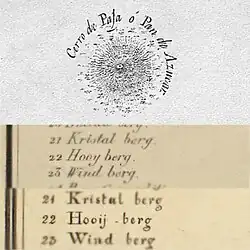 Cerro de Pasa ó Pan de Azucar
21 Kristal berg.
22 Hooy berg.
23 Wind berg.
21 Kristal berg
22 Hooij - berg
23 Wind berg